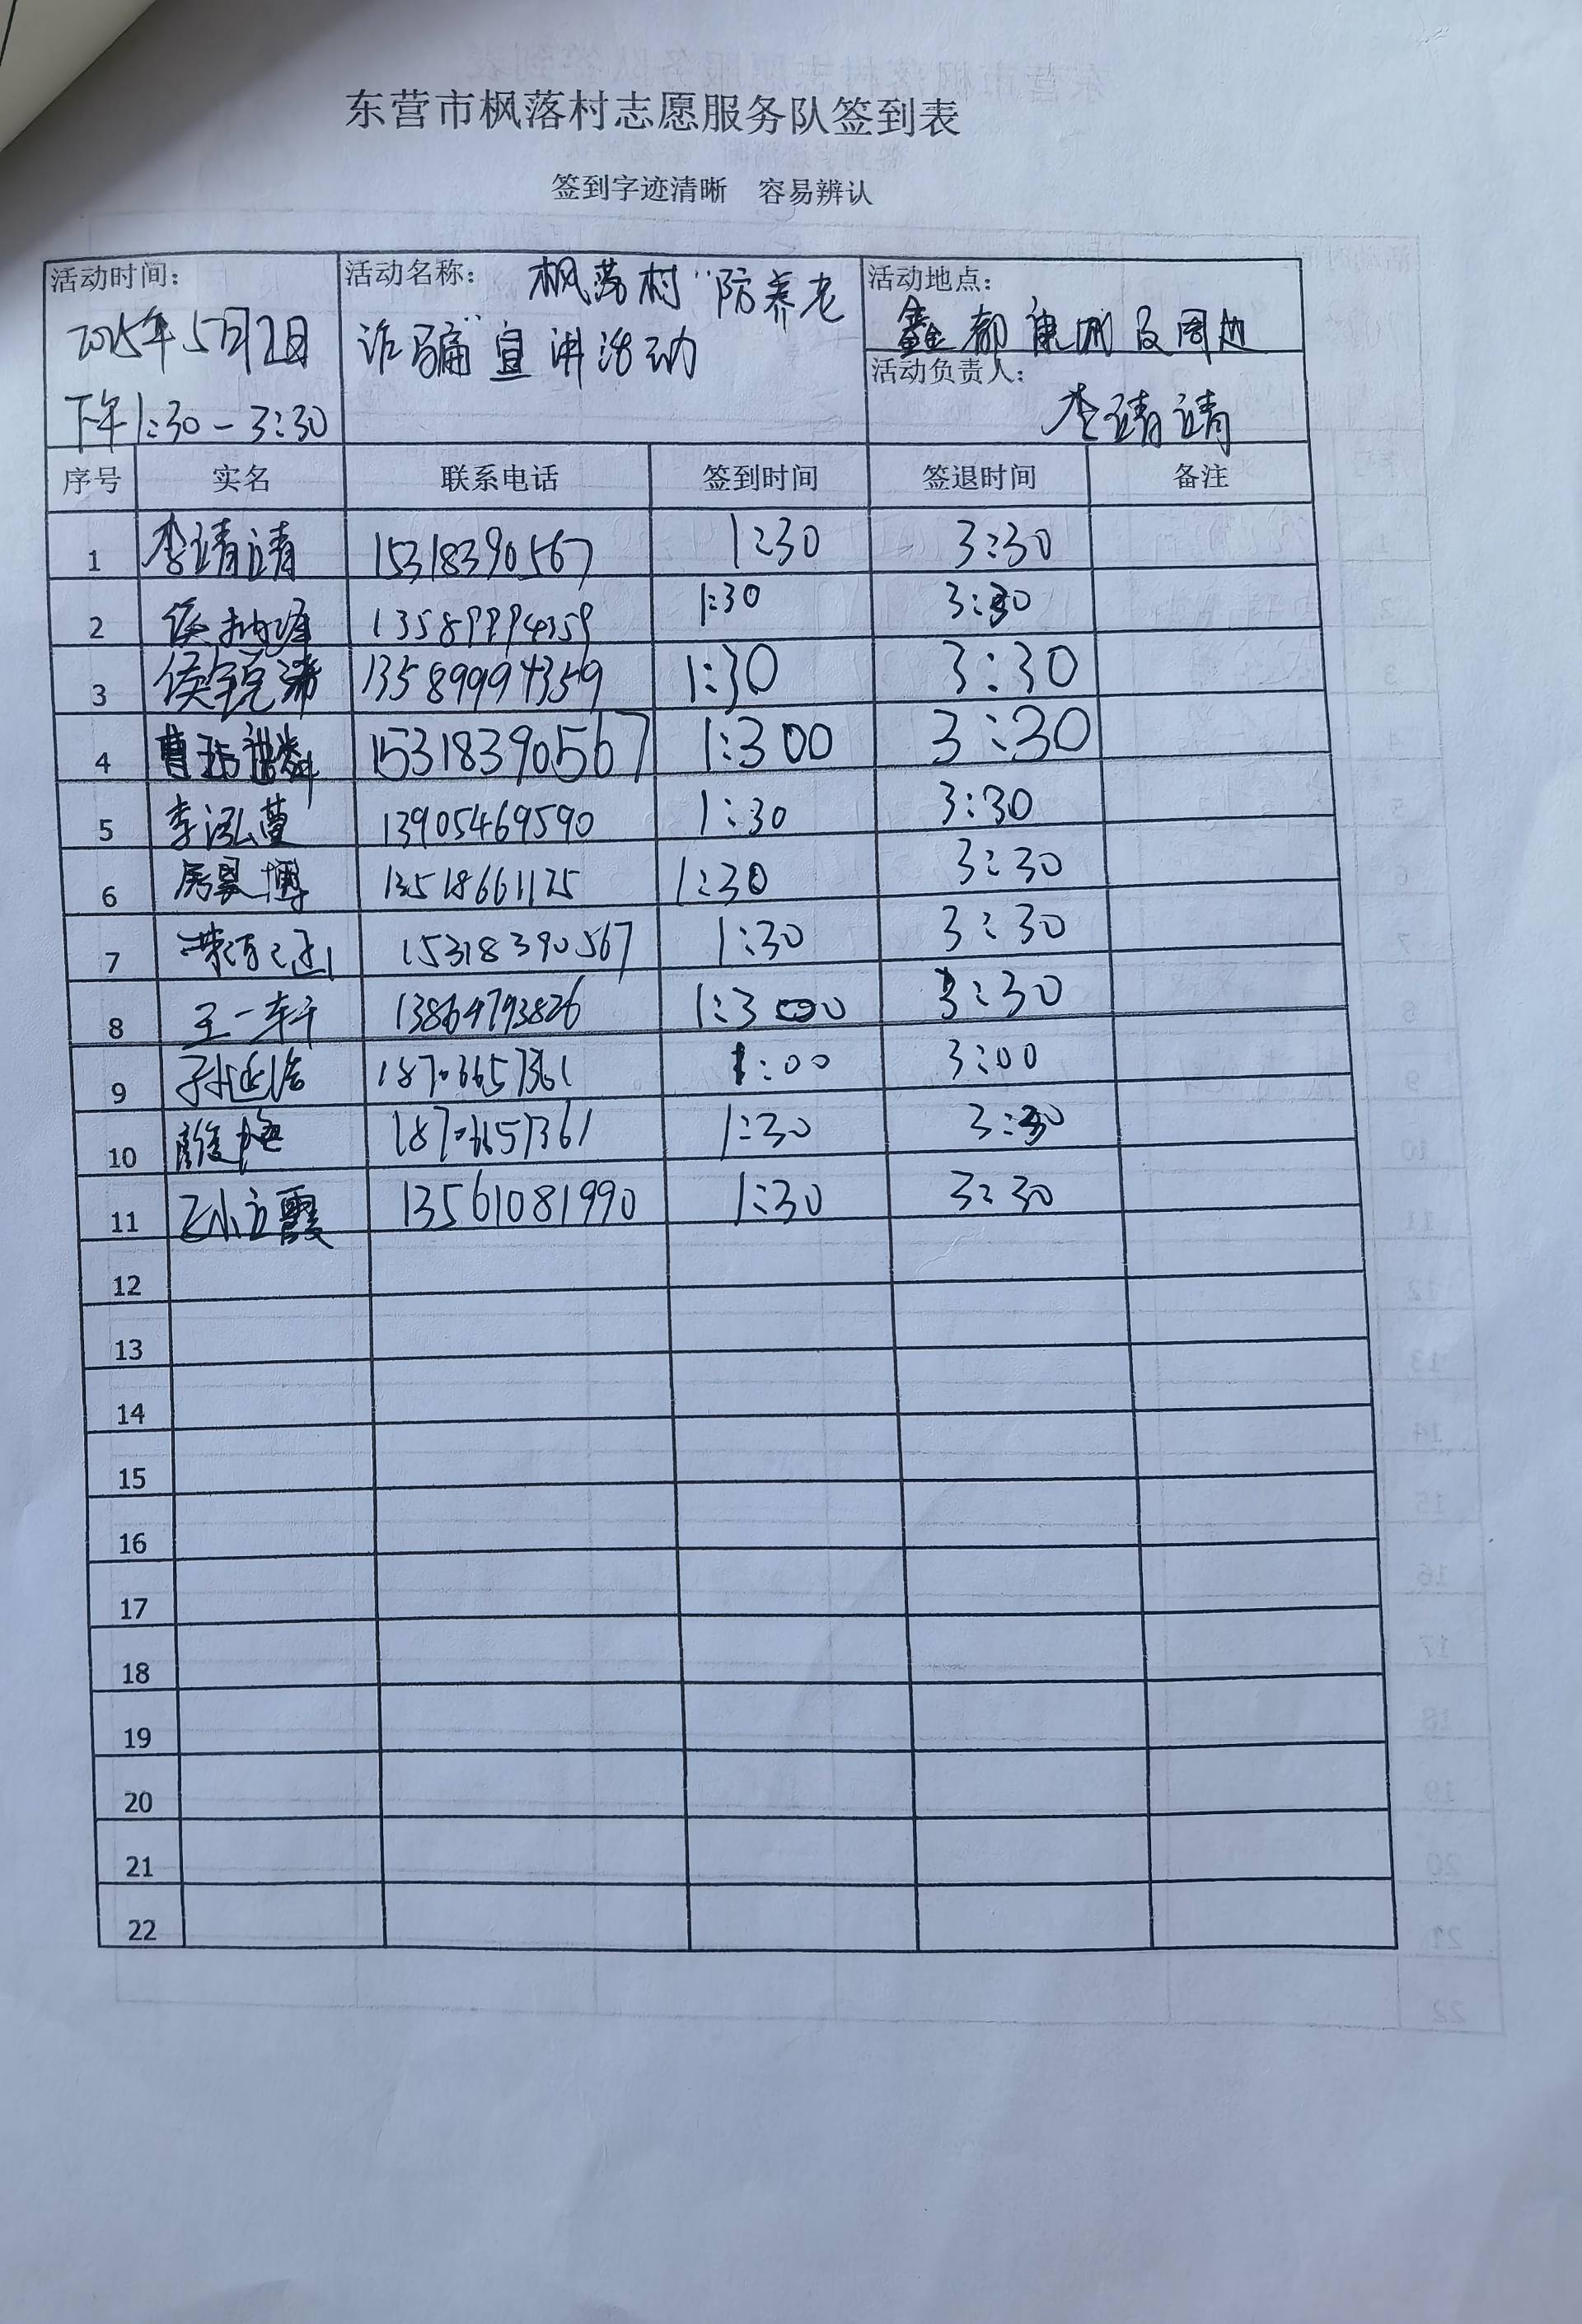 东营市枫落村志愿服务队签到表
签到字迹清晰 容易辨认
活动时间： 活动名称： 枫落村"防养老 活动地点：
2025年5月2日 诈骗"宣讲活动 鑫都康城及周边
下午1:30-3:30 活动负责人：
李靖靖
序号 实名 联系电话 签到时间 签退时间 备注
1 李靖靖 15318390567 1:30 3:30
2 侯 13589994359 1:30 3:30
3 侯锐涛 13589994359 1:30 3:30
4 曹 15318390567 1:300 3:30
5 李泓萱 13905469590 1:30 3:30
6 房昊博 13518661125 1:30 3:30
7 15318390567 1:30 3:30
8 王一轩 13864793826 1:30 3:30
9 孙延浩 18706657361 1:00 3:00
10 18706657361 1:30 3:30
11 霞 13561081990 1:30 3:30
12
13
14
15
16
17
18
19
20
21
22